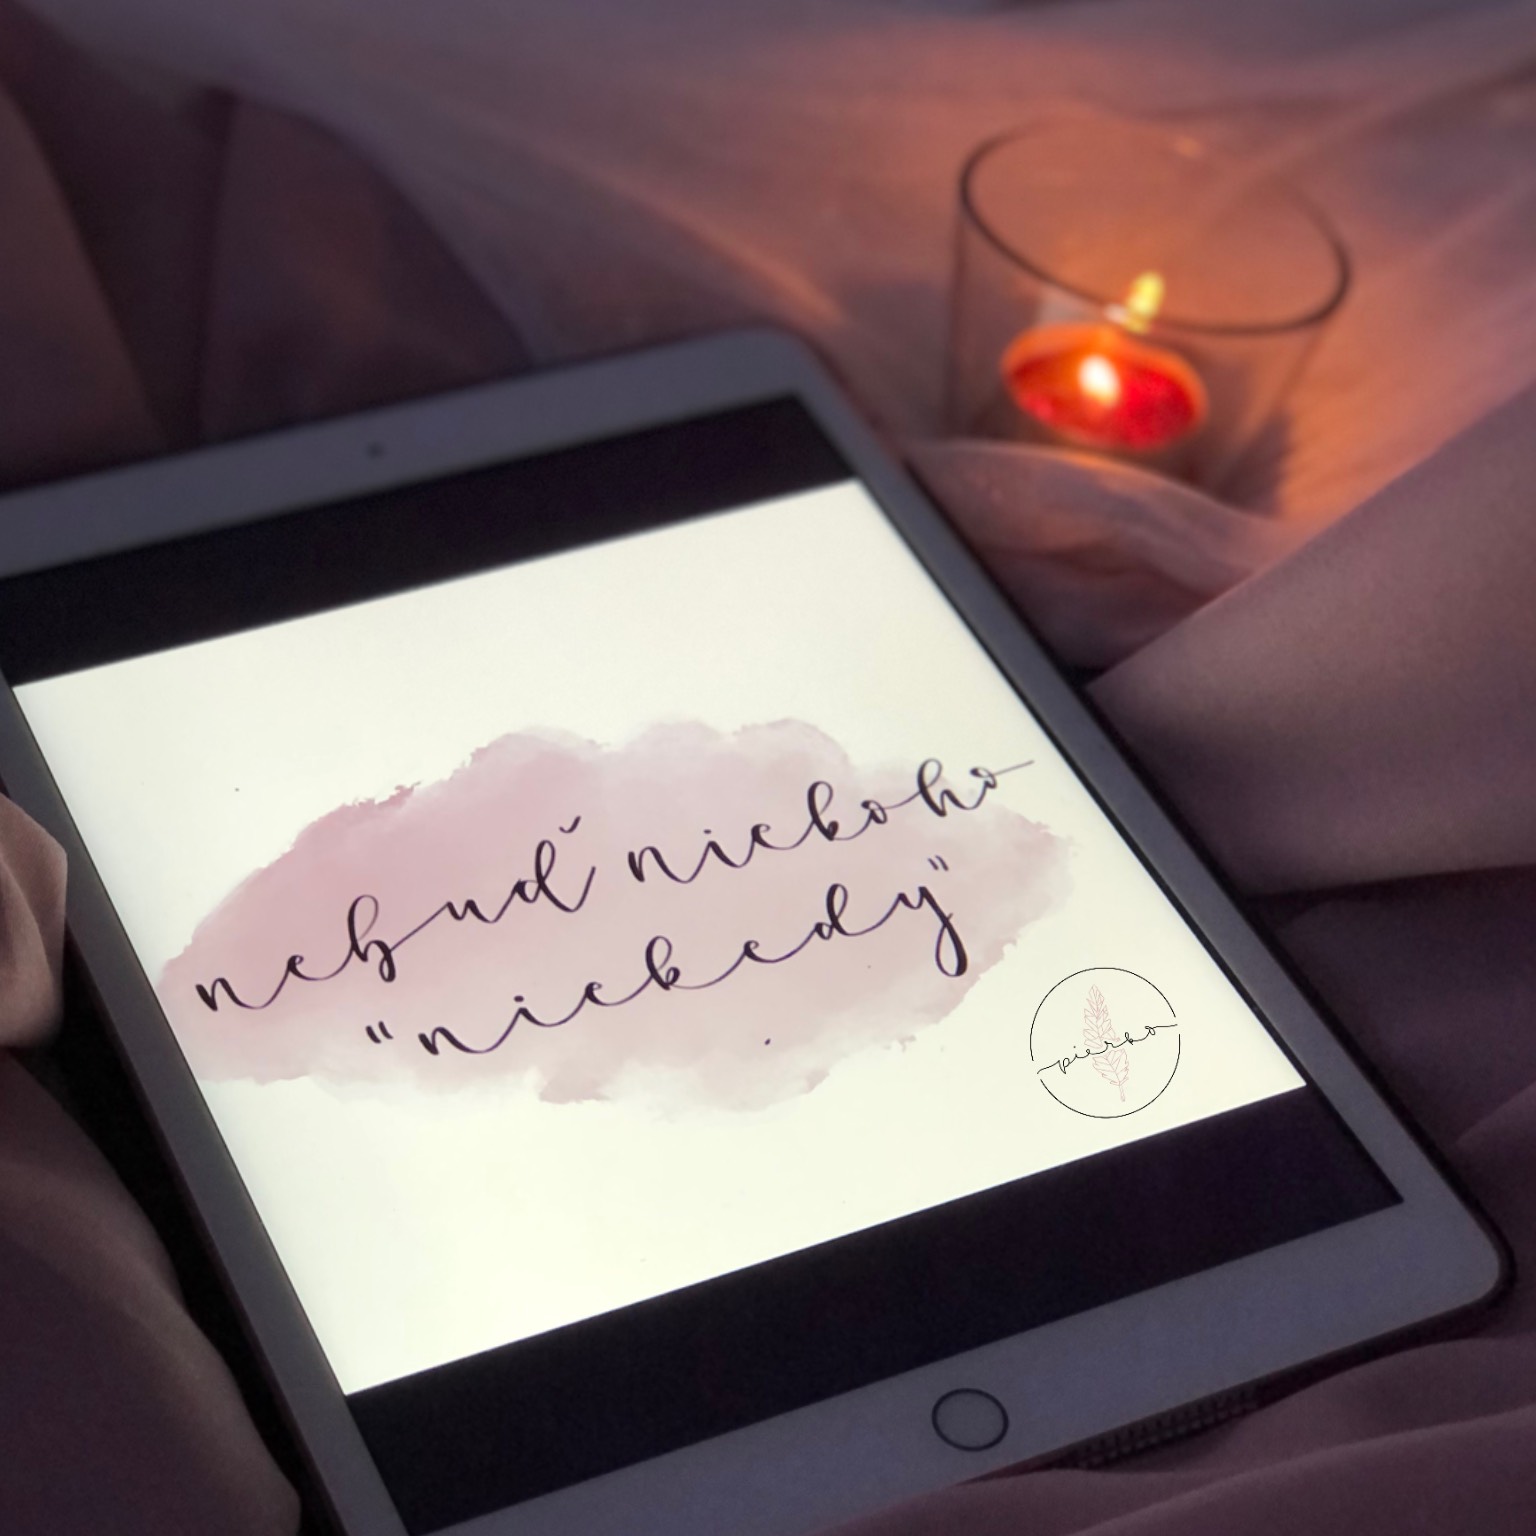 nebuď niekoho
"niekedy"
pierko